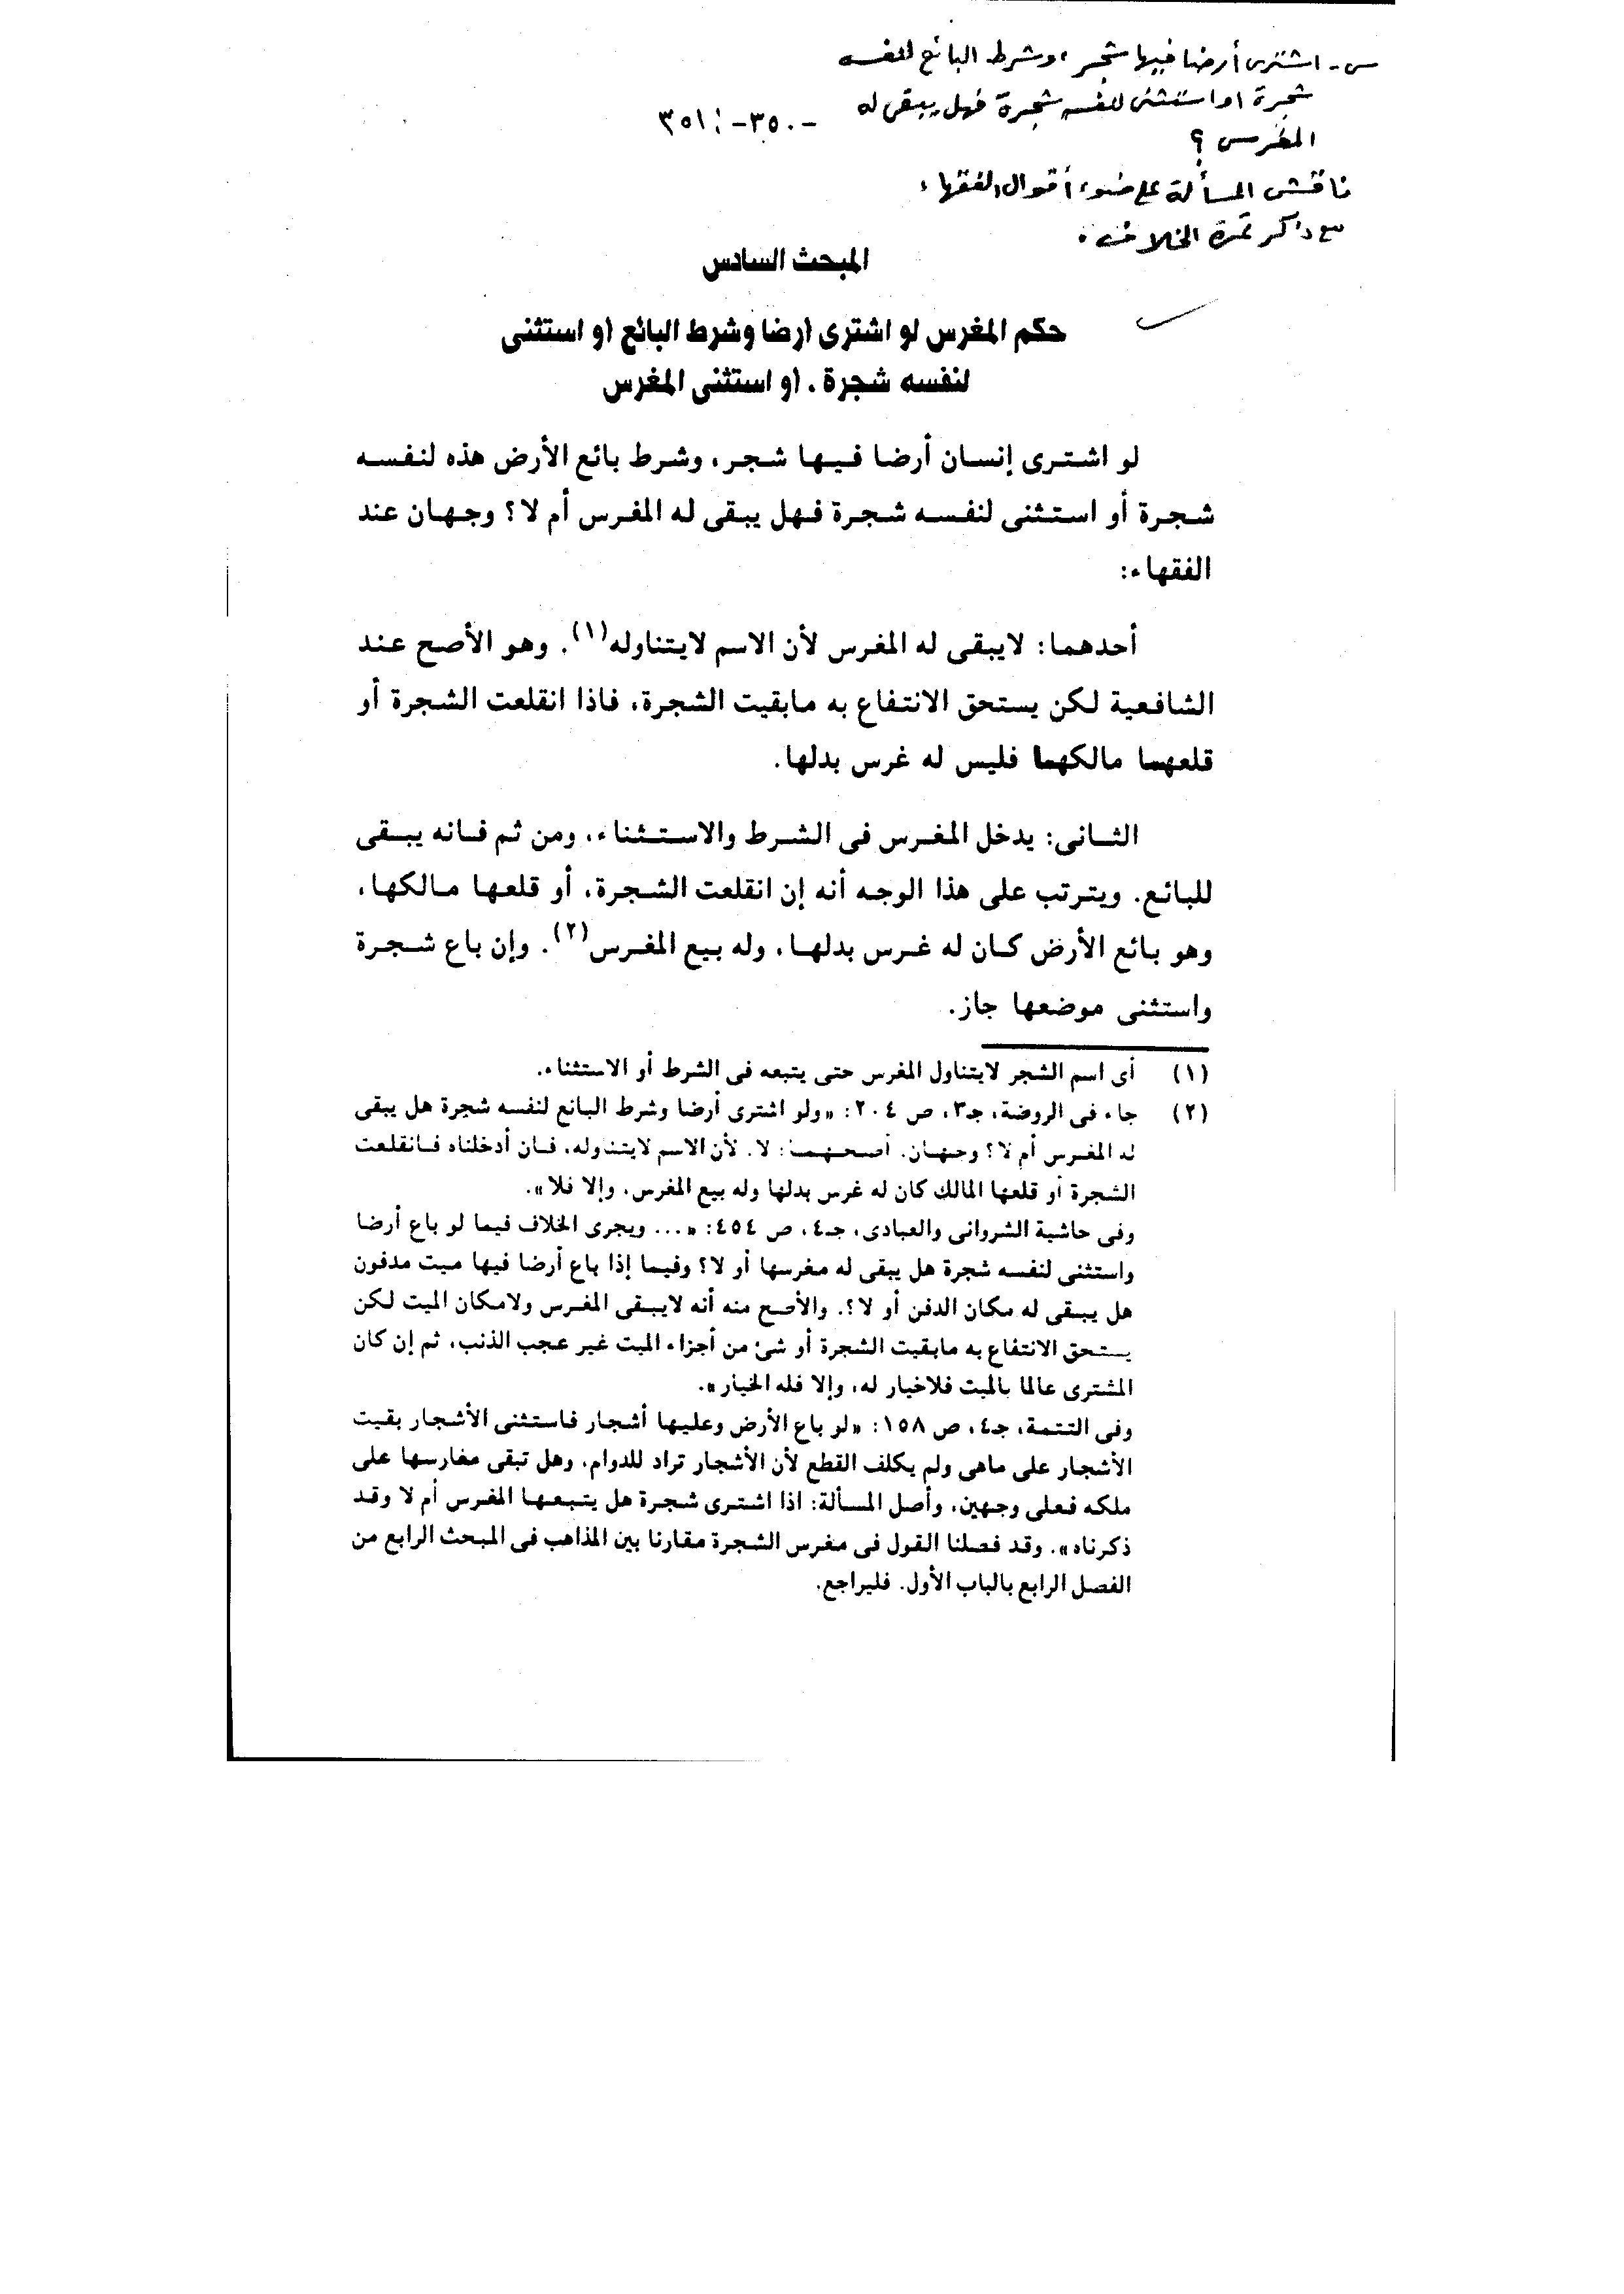 س - اشترى أرضا فيها شجر، وشرط البائع لنفسه
شجرة او استثنى لنفسه شجرة فهل يبقى له
المغرس ؟
-٣٥٠ - ٣٥١
ناقش المسألة على ضوء أقوال الفقهاء
مع ذكر ثمرة الخلاف .
المبحث السادس
حكم المغرس لو اشترى أرضا وشرط البائع أو استثنى
لنفسه شجرة . أو استثنى المغرس
لو اشترى إنسان أرضا فيها شجر، وشرط بائع الأرض هذه لنفسه
شجرة أو استثنى لنفسه شجرة فهل يبقى له المغرس أم لا؟ وجهان عند
الفقهاء:
أحدهما: لايبقى له المغرس لأن الاسم لايتناوله(١). وهو الأصح عند
الشافعية لكن يستحق الانتفاع به مابقيت الشجرة، فاذا انقلعت الشجرة أو
قلعهما مالكهما فليس له غرس بدلها.
الثانى: يدخل المغرس فى الشرط والاستثناء، ومن ثم فانه يبقى
للبائع. ويترتب على هذا الوجه أنه إن انقلعت الشجرة، أو قلعها مالكها،
وهو بائع الأرض كان له غرس بدلها، وله بيع المغرس(٢). وإن باع شجرة
واستثنى موضعها جاز.
(١) أى اسم الشجر لايتناول المغرس حتى يتبعه فى الشرط أو الاستثناء.
(٢) جاء فى الروضة، جـ٣، ص ٢٠٤: «ولو اشترى أرضا وشرط البائع لنفسه شجرة هل يبقى
له المغرس أم لا؟ وجهان. أصحهما: لا. لأن الاسم لايتناوله، فان أدخلناه فانقلعت
الشجرة أو قلعها المالك كان له غرس بدلها وله بيع المغرس، وإلا فلا».
وفى حاشية الشروانى والعبادى، جـ٤، ص ٤٥٤: «... ويجرى الخلاف فيما لو باع أرضا
واستثنى لنفسه شجرة هل يبقى له مغرسها أو لا؟ وفيما إذا باع أرضا فيها ميت مدفون
هل يبقى له مكان الدفن أو لا؟. والأصح منه أنه لايبقى المغرس ولامكان الميت لكن
يستحق الانتفاع به مابقيت الشجرة أو شئ من أجزاء الميت غير عجب الذنب، ثم إن كان
المشترى عالما بالميت فلاخيار له، وإلا فله الخيار».
وفى التتمة، جـ٤، ص ١٥٨: «لو باع الأرض وعليها أشجار فاستثنى الأشجار بقيت
الأشجار على ماهى ولم يكلف القطع لأن الأشجار تراد للدوام، وهل تبقى مغارسها على
ملكه فعلى وجهين، وأصل المسألة: اذا اشترى شجرة هل يتبعها المغرس أم لا وقد
ذكرناه». وقد فصلنا القول فى مغرس الشجرة مقارنا بين المذاهب فى المبحث الرابع من
الفصل الرابع بالباب الأول. فليراجع.